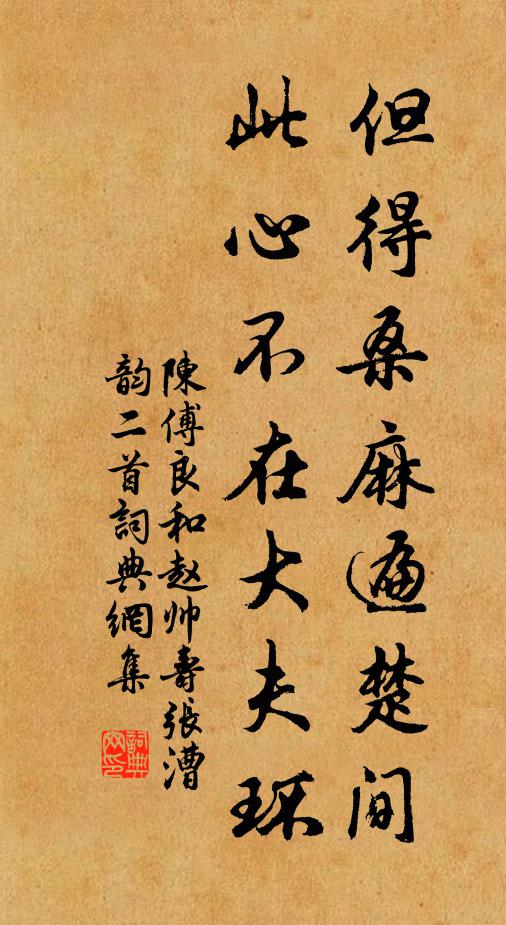 但得桑麻遍楚间
此心不在大夫环
陳傅良和赵帅壽張漕
韵二首詞典網集
詞典网印